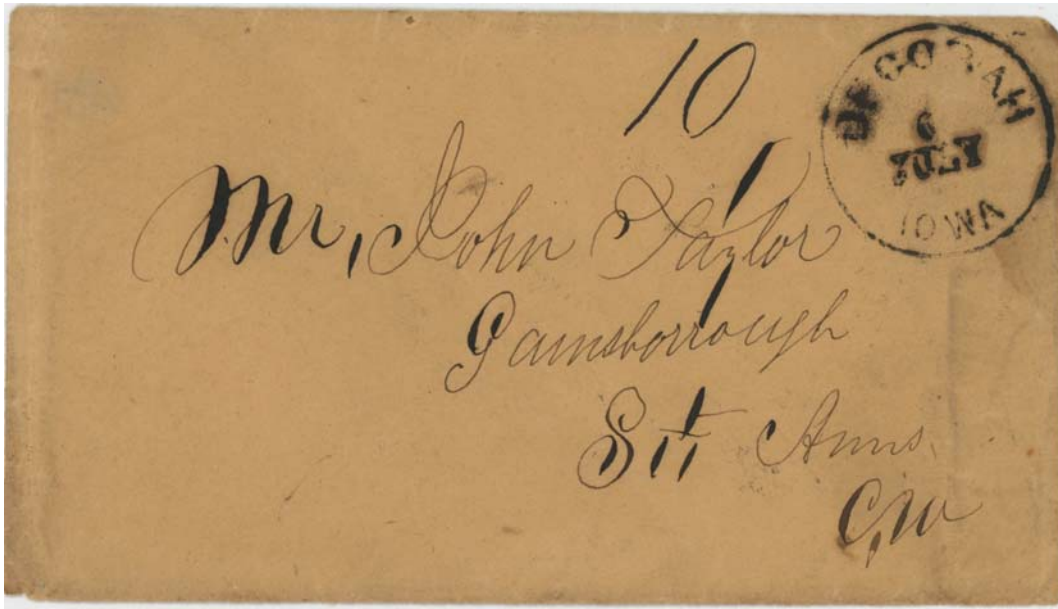 10
DECORAH
9
IOWA
Mr, John Taylor
Gainsborrough
Stt Anns
C,W